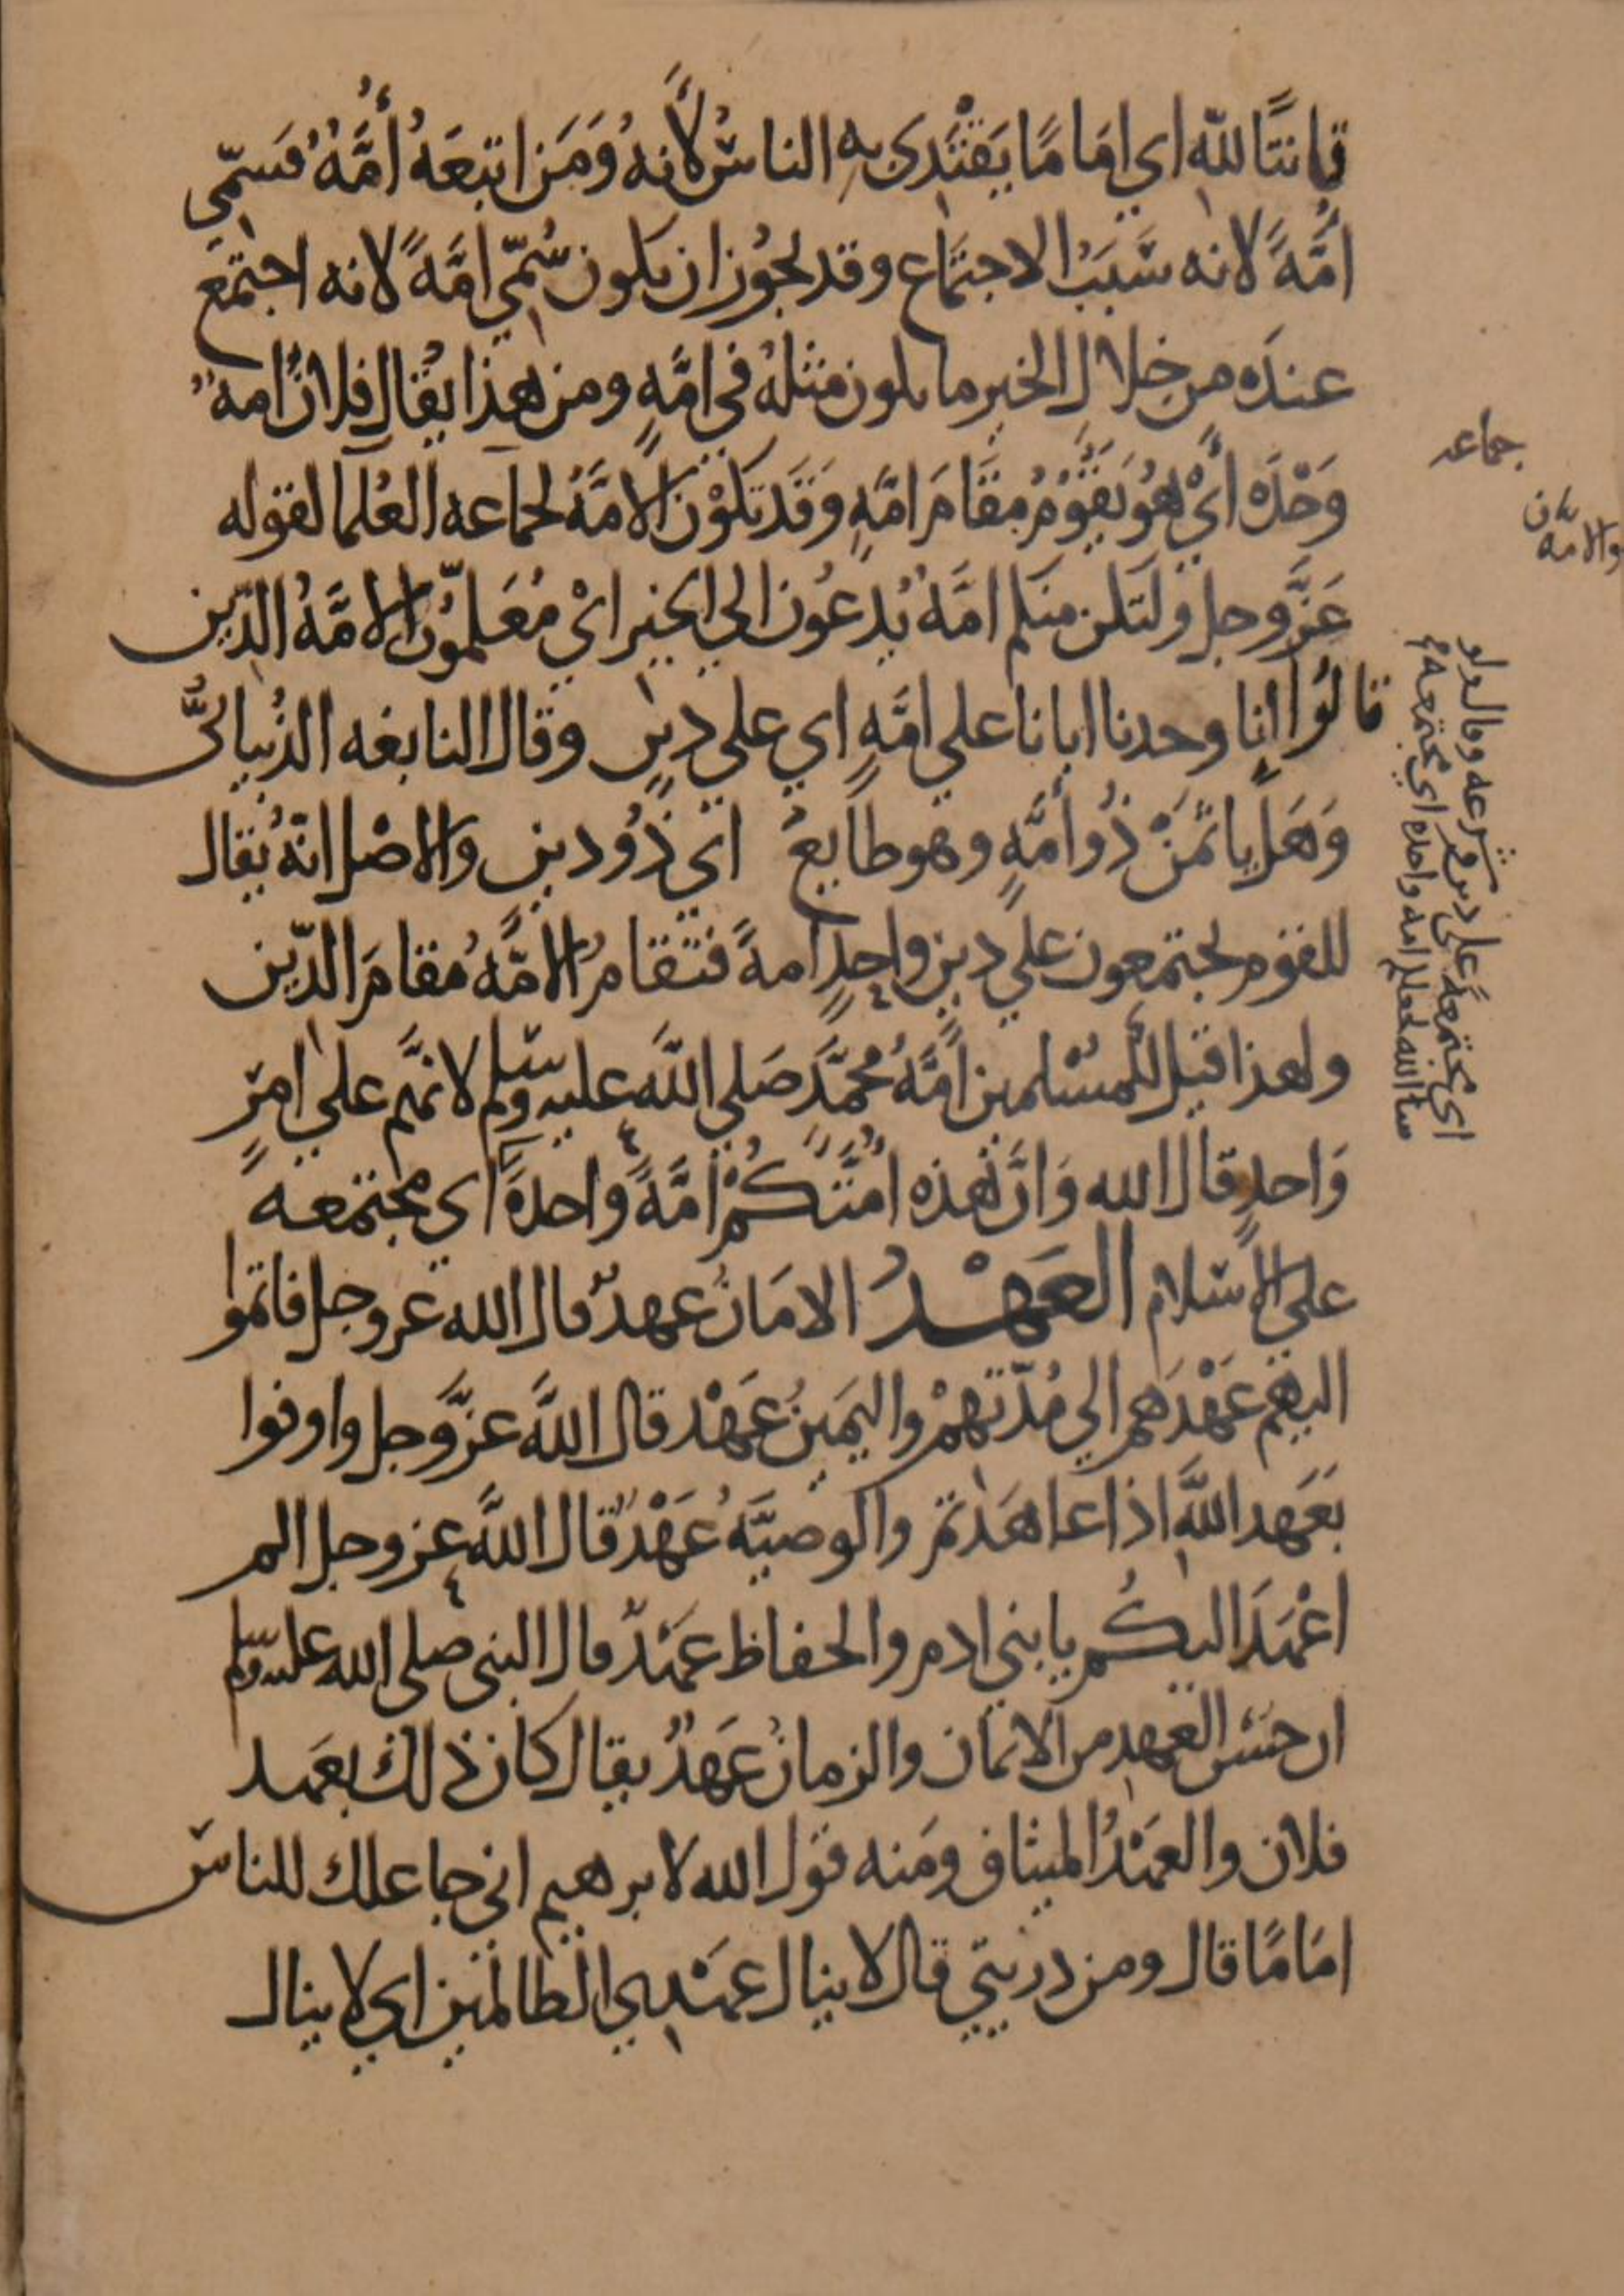 قانتًا لله اي امَامًا يَقْتَدى به الناسُ لأنهُ وَمَن اتبعَهُ أُمَّةٌ فَسمّي
أُمَّةً لانه سَبَبُ الاجتمَاع وقد يجوُز ان يكون سُمّي امَّةً لانه اجتمَع
عندَه من خِلالِ الخير ما يكون مثلهُ في امَّةٍ ومن هذا يقُال فلانٌ امةٌ
وَحْدَه أيْ هُوَ يَقوُمُ مقَامَ امّةٍ وَقَد تكَوْن الامَّةُ لجماعه العُلما لقوله
عَزَّ وجل ولتكن منكم امَّةٌ يُدعُون الي الخير ايْ مُعَلمّوُن الامَّةُ الدّين
قالوُا انا وجدنا ابانا علي امَّةٍ اي علي دينٍ وقال النابغه الذُبيانيُّ
وَهَل ياثَمَنْ ذُو أمَّةٍ وهو طايعُ اي ذوُ دينٍ والاصْل انّهُ يُقال
للقوم يجتمعون علي دين واحدٍ امةً فتقامُ الامَّةُ مقامَ الدّين
ولهذا قيل للمسْلمين امَّةُ محمَّدٍ صَلي اللَه عليه وسَلم لانهَّم علي امرٍ
وَاحدٍ قال الله وَانَّ هذه امَّتَكُمْ امَّةً وَاحدةً اي مجتمعةً
علي الاسلام العَهْدُ الامَانُ عهدٌ قال الله عز وجل فاتموا
اليهم عَهْدَهم الي مُدّتهمْ واليَمينُ عَهْد قال اللَّه عزَّ وجل واوفوا
بعَهد اللَّه اذا عاهَدتم والوصيَّةُ عَهْدٌ قال اللَّه عز وجل الم
اعْهَد اليكُم يا بني ادم والحفاظ عَهْدٌ قال النبي صلى الله عليه وسلم
ان حسن العهد من الايمَان والزمانُ عَهدٌ يقال كان ذلك بعَهد
فلان والعَهْدُ الميثاق ومَنه قول الله لابرهيم اني جاعلك للناس
امَامًا قال ومن ذريتي قال لا ينال عهْدي الظالمين اي لا ينال
جماعه
والامة
شرعه وقال
اي مجتمعةً على دين
امه واحده اي مجتمعة